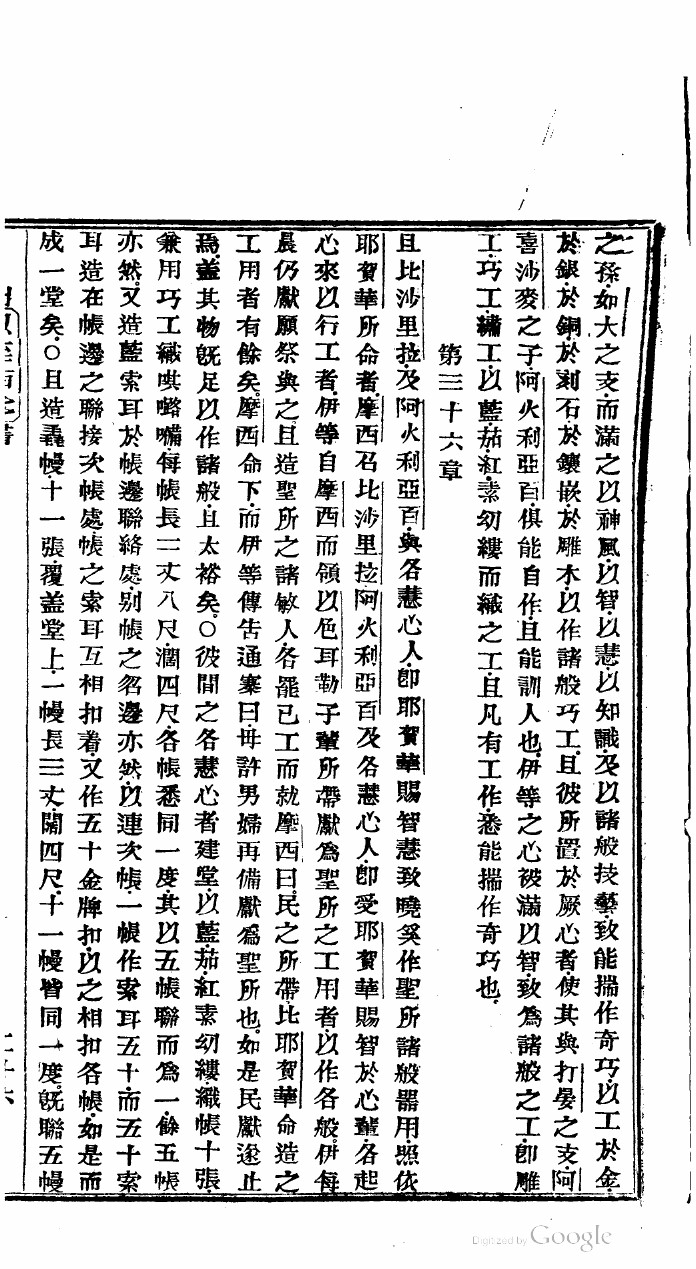 之孫如大之支而滿之以神風以智以慧以知識及以諸般技藝致能揣作奇巧以工於金
於銀於銅於刻石於鑲嵌於雕木以作諸般巧工且彼所置於厥心者使其與打晏之支阿
喜沙麥之子阿火利亞百俱能自作且能訓人也伊等之心被滿以智致爲諸般之工卽雕
工巧工繡工以藍茄紅素幼縷而織之工且凡有工作悉能揣作奇巧也
第三十六章
且比沙里拉及阿火利亞百與各慧心人卽耶賀華賜智慧致曉奚作聖所諸般器用照依
耶賀華所命者摩西召比沙里拉阿火利亞百及各慧心人卽受耶賀華賜智於心輩各起
心來以行工者伊等自摩西而領以色耳勒子輩所帶獻爲聖所之工用者以作各般伊每
晨仍獻願祭與之且造聖所之諸敏人各罷已工而就摩西曰民之所帶比耶賀華命造之
工用者有餘矣摩西命下而伊等傳吿通寨曰毋許男婦再備獻爲聖所也如是民獻遂止
焉蓋其物旣足以作諸般且太裕矣○彼間之各慧心者建堂以藍茄紅素幼縷織帳十張
兼用巧工織㖿𠾐嘣每帳長二丈八尺濶四尺各帳悉同一度其以五帳聯而爲一餘五帳
亦然又造藍索耳於帳邊聯絡處别帳之名邊亦然以連次帳一帳作索耳五十而五十索
耳造在帳邊之聯接次帳處帳之索耳互相扣着又作五十金牌扣以之相扣各帳如是而
成一堂矣○且造毳幔十一張覆盖堂上一幔長三丈闊四尺十一幔皆同一度旣聯五幔
Digitized by Google